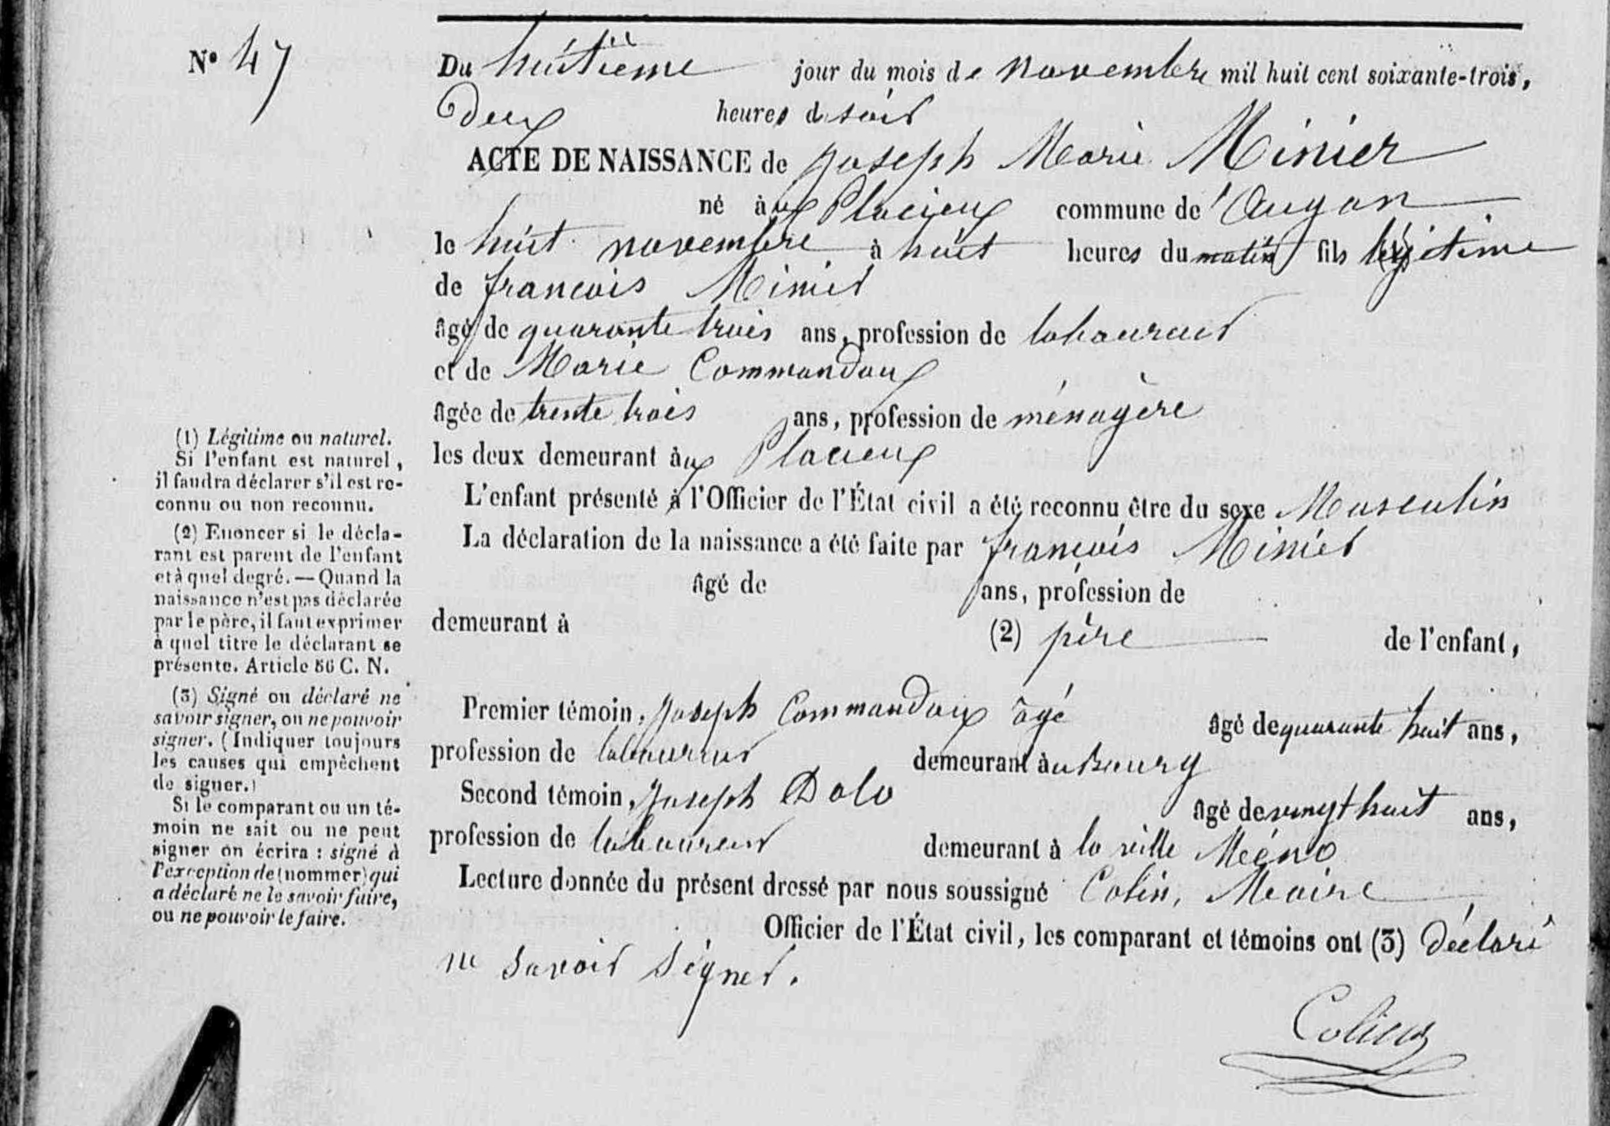 N° 47
Du huitième jour du mois de novembre mil huit cent soixante-trois,
Deux heures du soir
ACTE DE NAISSANCE de joseph Marie Minier
né aux Placieux commune de Augan
le huit novembre à huit heures du matin fils légitime
de françois Minier
âgé de quarante trois ans, profession de laboureur
et de Marie Commandoux
âgée de trente trois ans, profession de ménagère
les deux demeurant aux Placieux
L'enfant présenté à l'Officier de l'État civil a été reconnu être du sexe Masculin
La déclaration de la naissance a été faite par françois Minier
âgé de ans, profession de
demeurant à (2) père de l'enfant,
Premier témoin, joseph Commandoux âgé âgé de quarante huit ans,
profession de laboureur demeurant au Bourg
Second témoin, joseph Dolo âgé de vingt huit ans,
profession de laboureur demeurant à la ville Méeno
Lecture donnée du présent dressé par nous soussigné Colin, Maire
Officier de l'État civil, les comparant et témoins ont (3) déclaré
ne savoir signer.
Colin
(1) Légitime ou naturel.
Si l'enfant est naturel,
il faudra déclarer s'il est re-
connu ou non reconnu.
(2) Enoncer si le décla-
rant est parent de l'enfant
et à quel degré. — Quand la
naissance n'est pas déclarée
par le père, il faut exprimer
à quel titre le déclarant se
présente. Article 56 C. N.
(3) Signé ou déclaré ne
savoir signer, ou ne pouvoir
signer. (Indiquer toujours
les causes qui empêchent
de signer.)
Si le comparant ou un té-
moin ne sait ou ne peut
signer on écrira : signé à
l'exception de (nommer) qui
a déclaré ne le savoir faire,
ou ne pouvoir le faire.